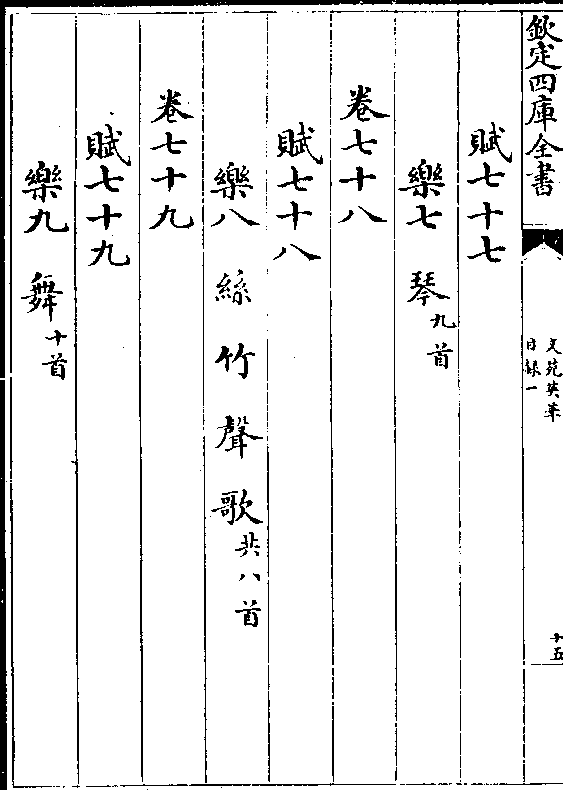 欽定四庫全書
文苑英華
目錄一
十五
賦七十七
樂七 琴九首
卷七十八
賦七十八
樂八 絲 竹 聲 歌共八首
卷七十九
賦七十九
樂九 舞十首